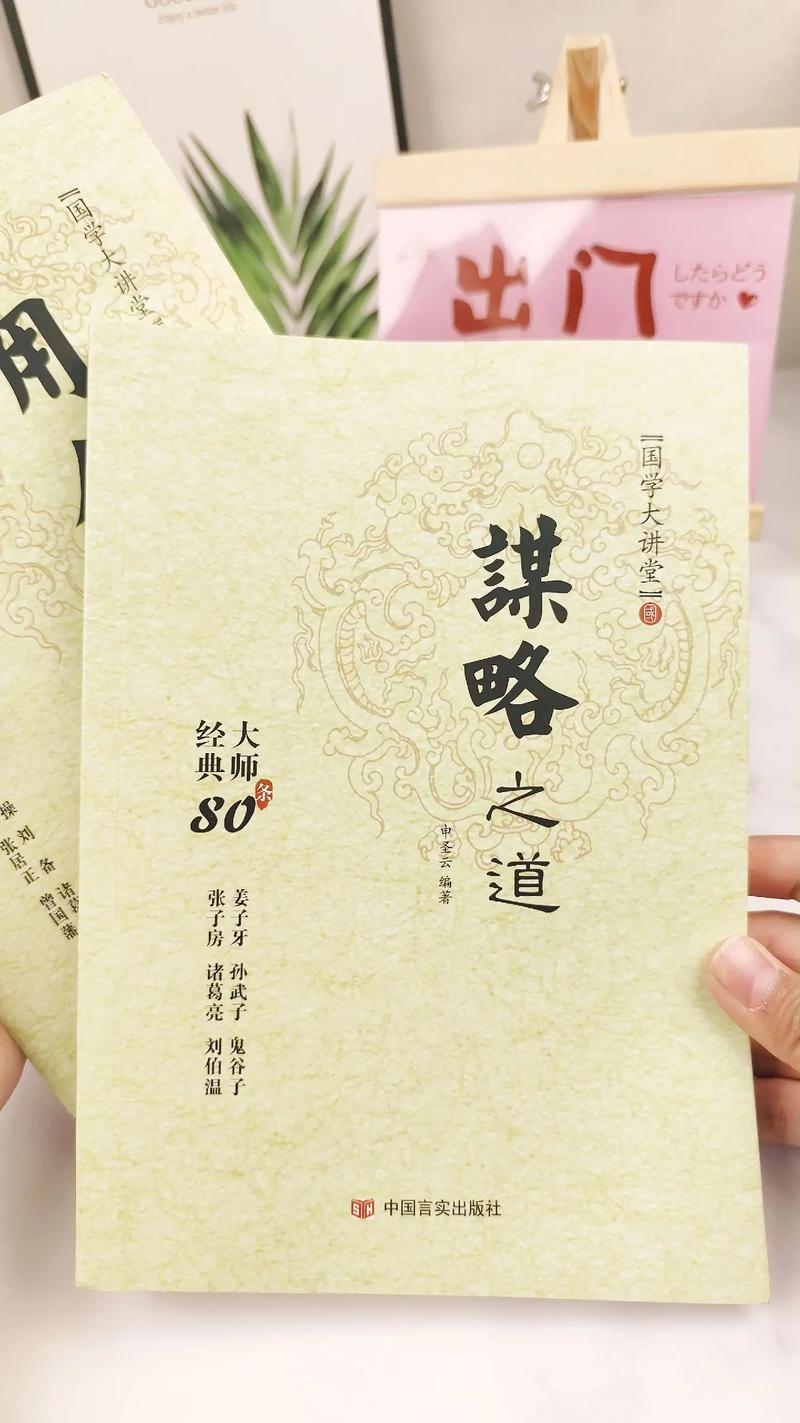 Enjoy a better life
出门
したらどう
ですか
【国学大讲堂】
用
刘备 诸葛
张居正 曾国藩
【国学大讲堂】
國
謀略之道
申圣云 编著
大师
经典
80条
姜子牙 孙武子 鬼谷子
张子房 诸葛亮 刘伯温
中国言实出版社